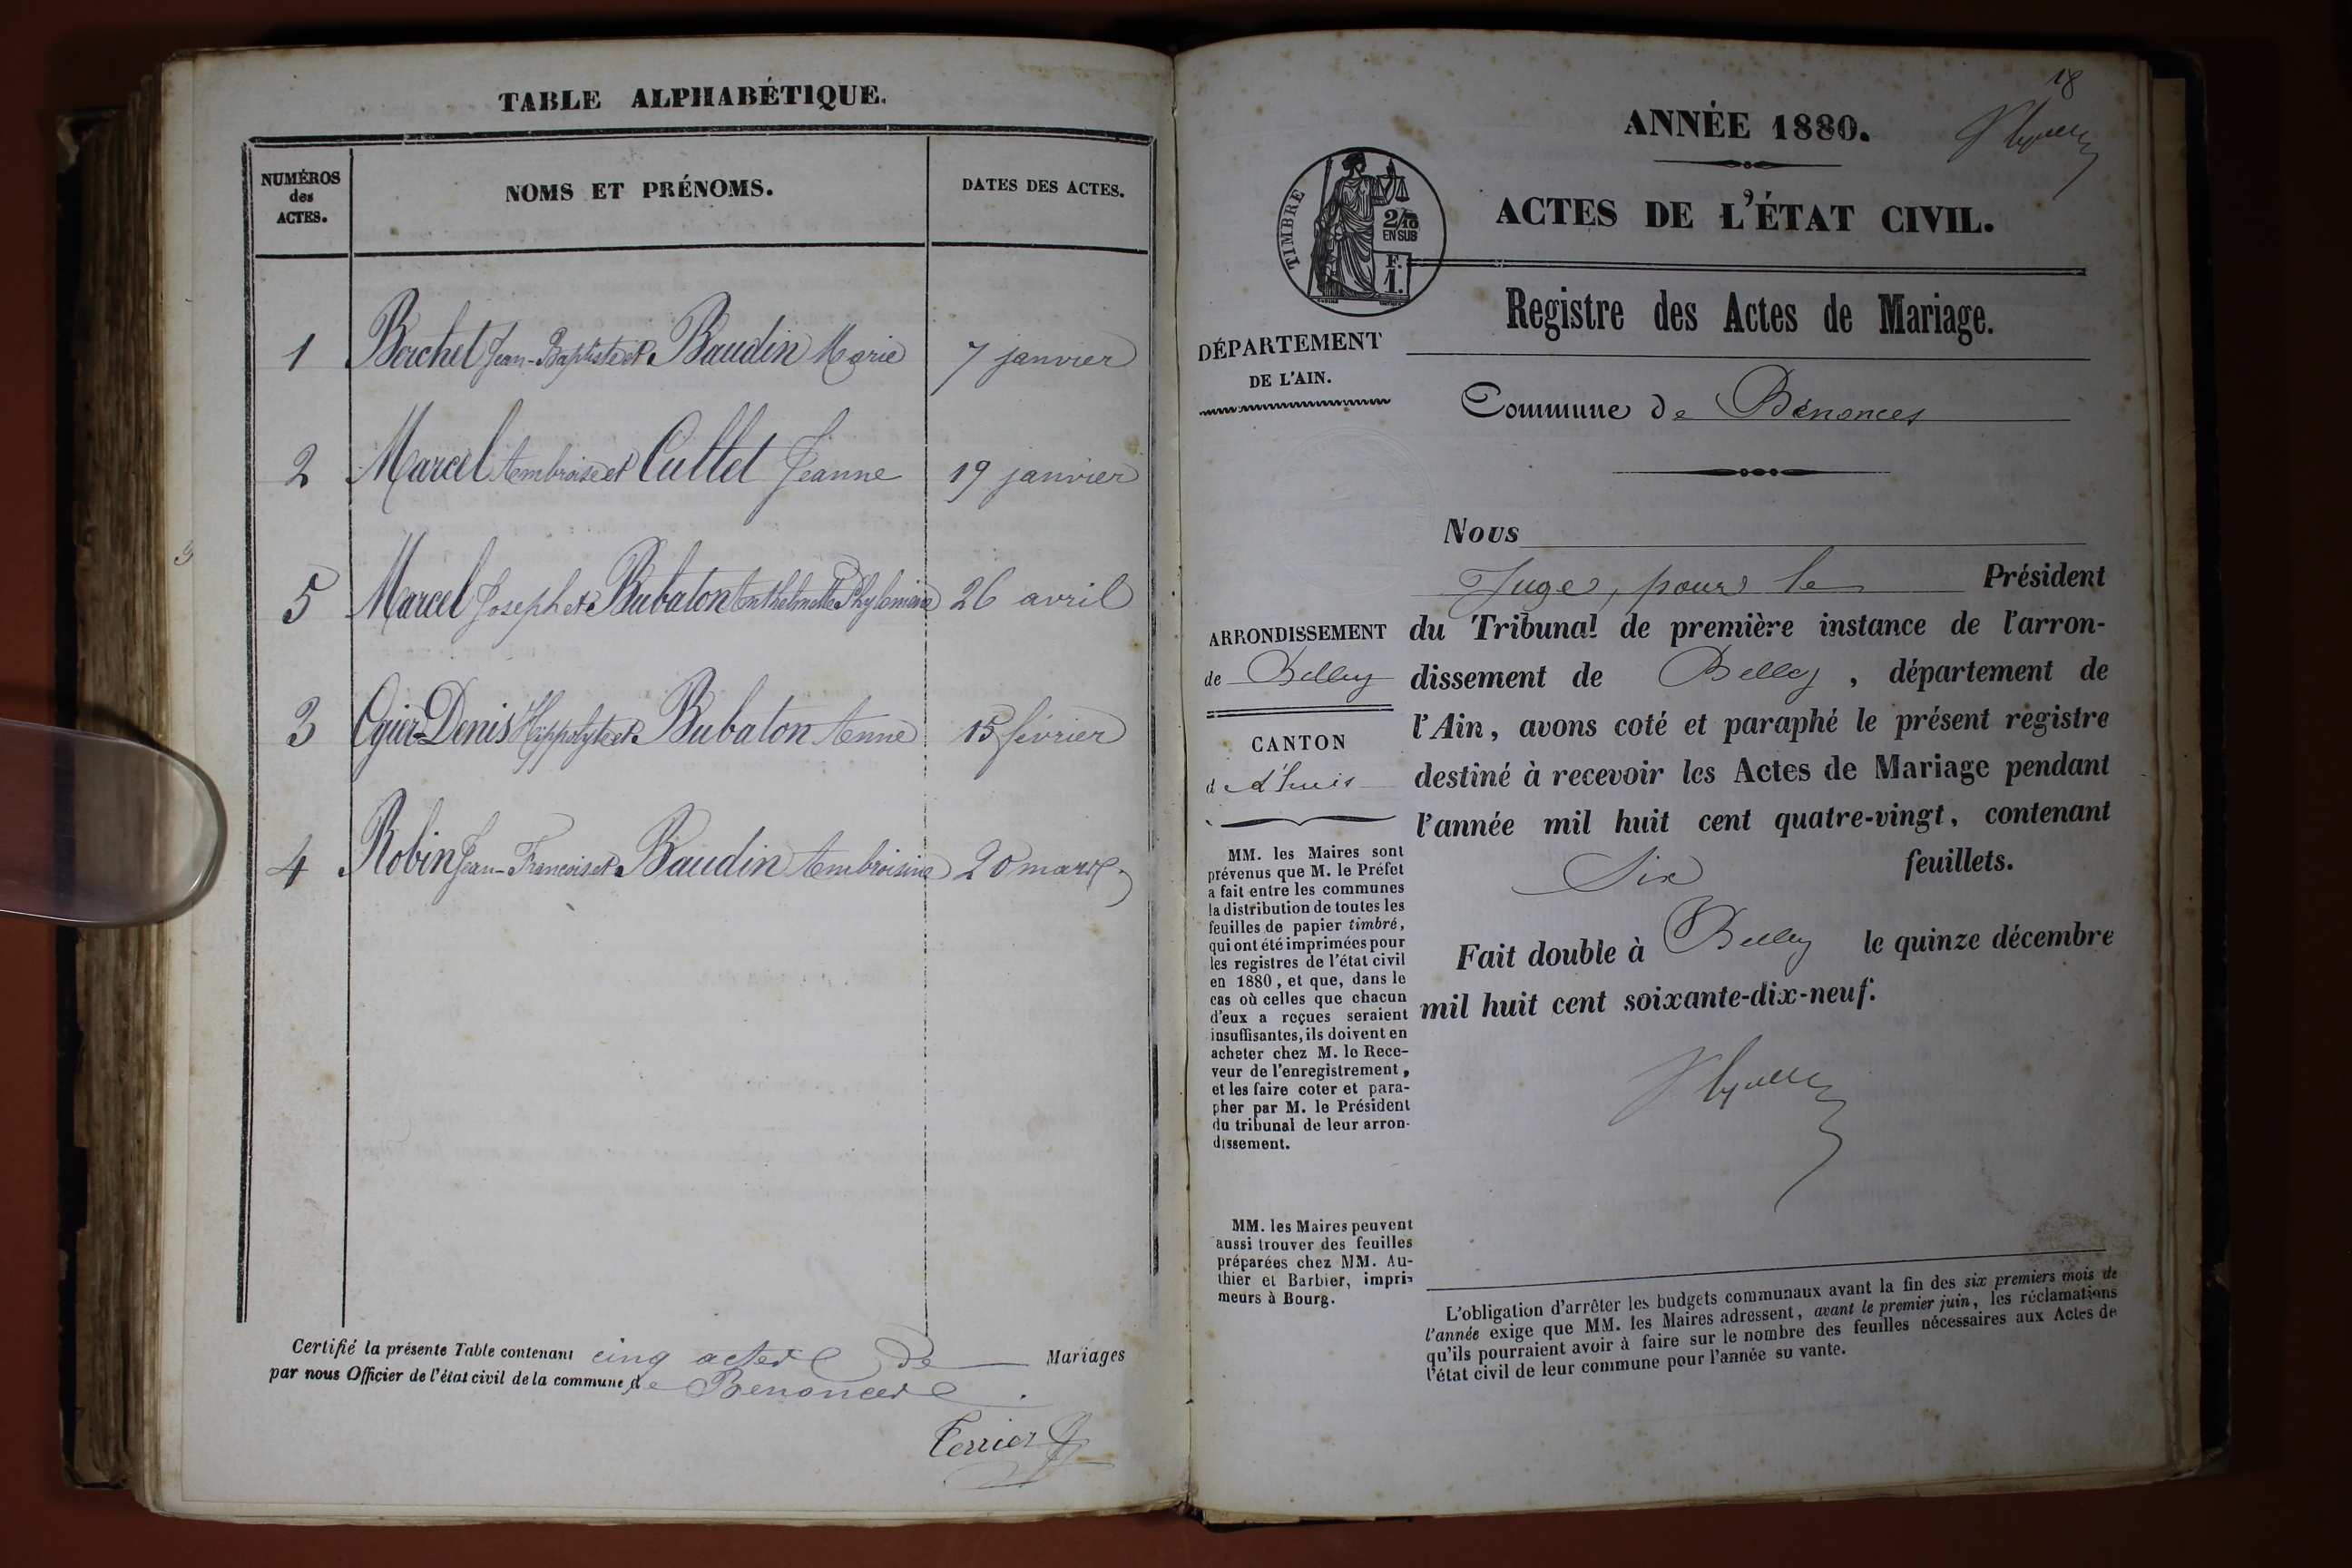 TABLE ALPHABÉTIQUE.
NUMÉROS des ACTES.
NOMS ET PRÉNOMS.
DATES DES ACTES.
1 Borchet Jean-Baptiste et Baudin Marie 7 janvier
2 Marcel Ambroise et Cullet Jeanne 19 janvier
5 Marcel Joseph et Bubaton Anthelmette Phylomène 26 avril
3 Ogier-Denis Hippolyte et Bubaton Anne 15 février
4 Robin Jean-François et Baudin Ambroisine 20 mars
Certifié la présente Table contenant cinq actes de Mariages
par nous Officier de l'état civil de la commune de Benonces
Terrier
18
ANNÉE 1880.
ACTES DE L'ÉTAT CIVIL.
TIMBRE
2/10
EN SUS
F.
1.
Registre des Actes de Mariage.
DÉPARTEMENT
DE L'AIN.
Commune de Bénonces
ARRONDISSEMENT
de Belley
CANTON
d e d'huis
MM. les Maires sont
prévenus que M. le Préfet
a fait entre les communes
la distribution de toutes les
feuilles de papier timbré,
qui ont été imprimées pour
les registres de l'état civil
en 1880, et que, dans le
cas où celles que chacun
d'eux a reçues seraient
insuffisantes, ils doivent en
acheter chez M. le Rece-
veur de l'enregistrement,
et les faire coter et para-
pher par M. le Président
du tribunal de leur arron-
dissement.
MM. les Maires peuvent
aussi trouver des feuilles
préparées chez MM. Au-
thier et Barbier, impri-
meurs à Bourg.
Nous
Juge, pour le Président
du Tribunal de première instance de l'arron-
dissement de Belley, département de
l'Ain, avons coté et paraphé le présent registre
destiné à recevoir les Actes de Mariage pendant
l'année mil huit cent quatre-vingt, contenant
Six feuillets.
Fait double à Belley le quinze décembre
mil huit cent soixante-dix-neuf.
L'obligation d'arrêter les budgets communaux avant la fin des six premiers mois de
l'année exige que MM. les Maires adressent, avant le premier juin, les réclamations
qu'ils pourraient avoir à faire sur le nombre des feuilles nécessaires aux Actes de
l'état civil de leur commune pour l'année su vante.